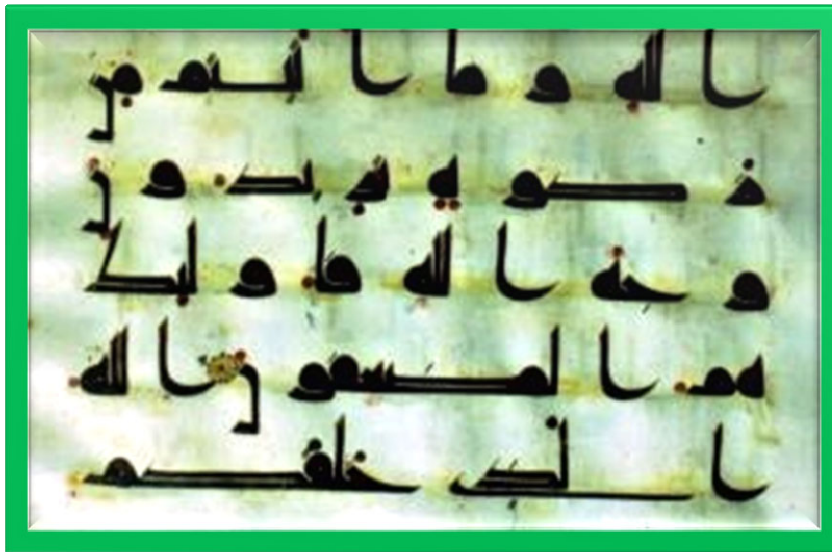 الله وما اتيتم من
زكوة تريدون
وجه الله فاولئك
هم المضعفون الله
الذى خلقكم